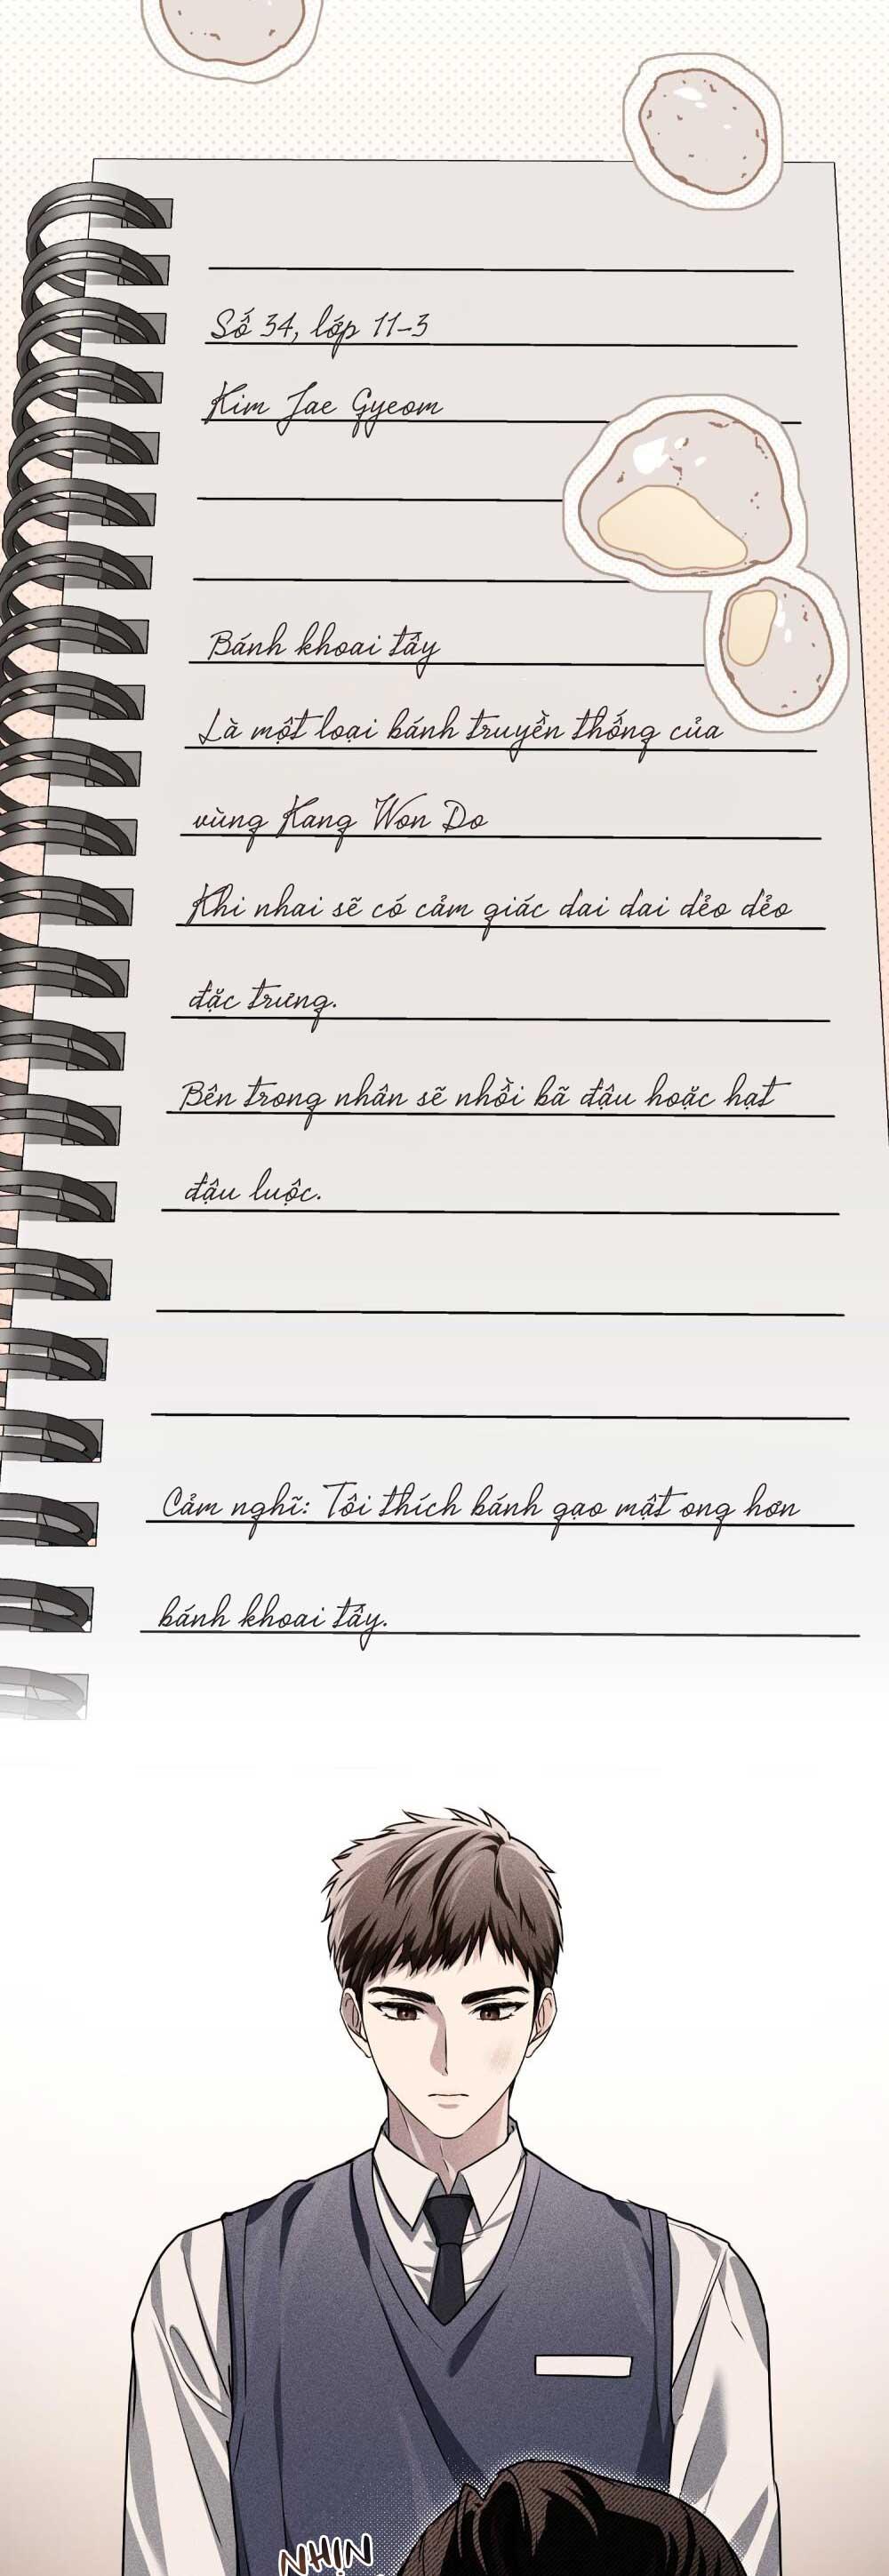 Số 34, lớp 11-3
Kim Jae Gyeom
Bánh khoai tây
Là một loại bánh truyền thống của
vùng Kang Won Do
Khi nhai sẽ có cảm giác dai dai dẻo dẻo
đặc trưng.
Bên trong nhân sẽ nhồi bã đậu hoặc hạt
đậu luộc.
Cảm nghĩ: Tôi thích bánh gạo mật ong hơn
bánh khoai tây.
NHỊN